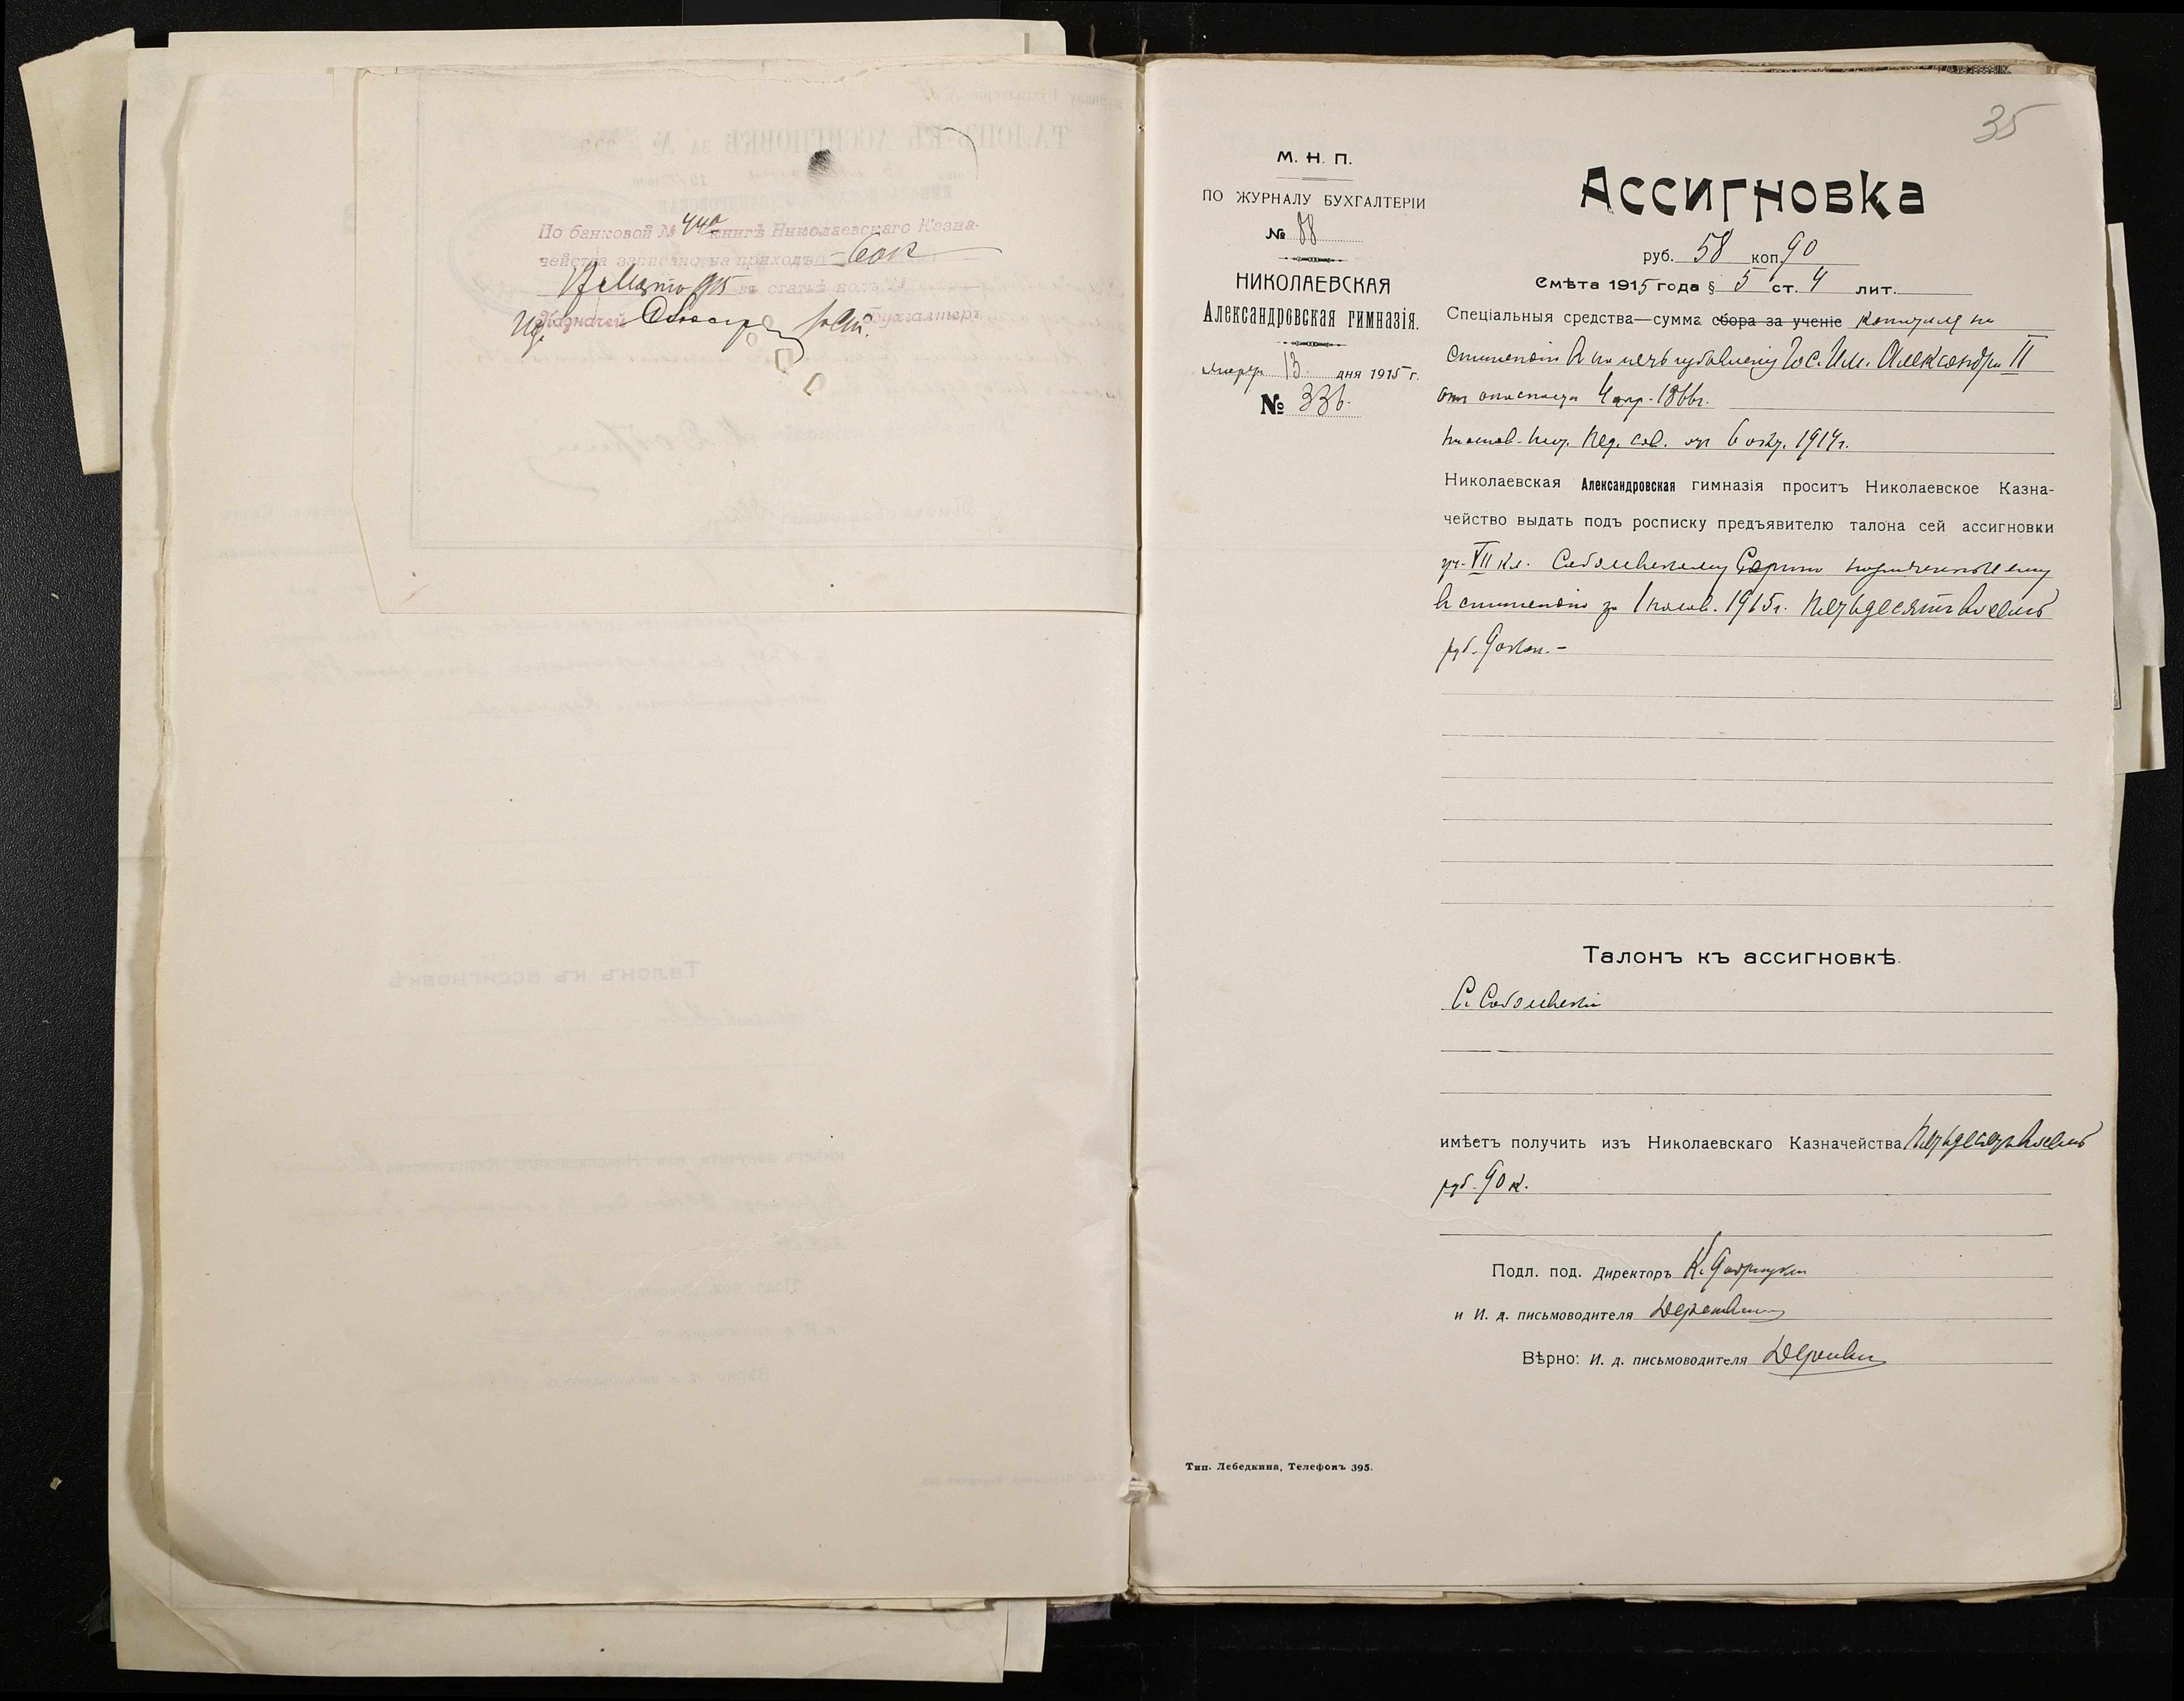 По банковой № 44а книгѣ Николаевскаго Казна-
чейства записано на приходъ 60 к
17 Марта 1915 въ статьѣ подъ №
Казначей Бухгалтеръ
35
М. Н. П.
ПО ЖУРНАЛУ БУХГАЛТЕРІИ
№ 88
НИКОЛАЕВСКАЯ
Александровская гимназія.
Января 13 дня 1915 г.
№ 336.
Ассигновка
руб. 58 коп. 90
Смѣта 1915 года § 5 ст. 4 лит.
Спеціальныя средства—сумма сбора за ученіе капитала на
стипендію въ память избавленія Гос. Имп. Александра II
отъ опасности 4 апр. 1866 г.
Постан. Пед. сов. отъ 6 окт. 1914 г.
Николаевская Александровская гимназія проситъ Николаевское Казна-
чейство выдать подъ росписку предъявителю талона сей ассигновки
уч. VII кл. Соболевскому Сергѣю назначенные ему
въ стипендію за 1 полов. 1915 г. Пятьдесятъ восемь
руб. 90 коп. –
Талонъ къ ассигновкѣ.
С. Соболевскій
имѣетъ получить изъ Николаевскаго Казначейства Пятьдесятъ восемь
руб. 90 к.
Подл. под. Директоръ К.
и И. д. письмоводителя
Вѣрно: И. д. письмоводителя
Тип. Лебедкина, Телефонъ 395.